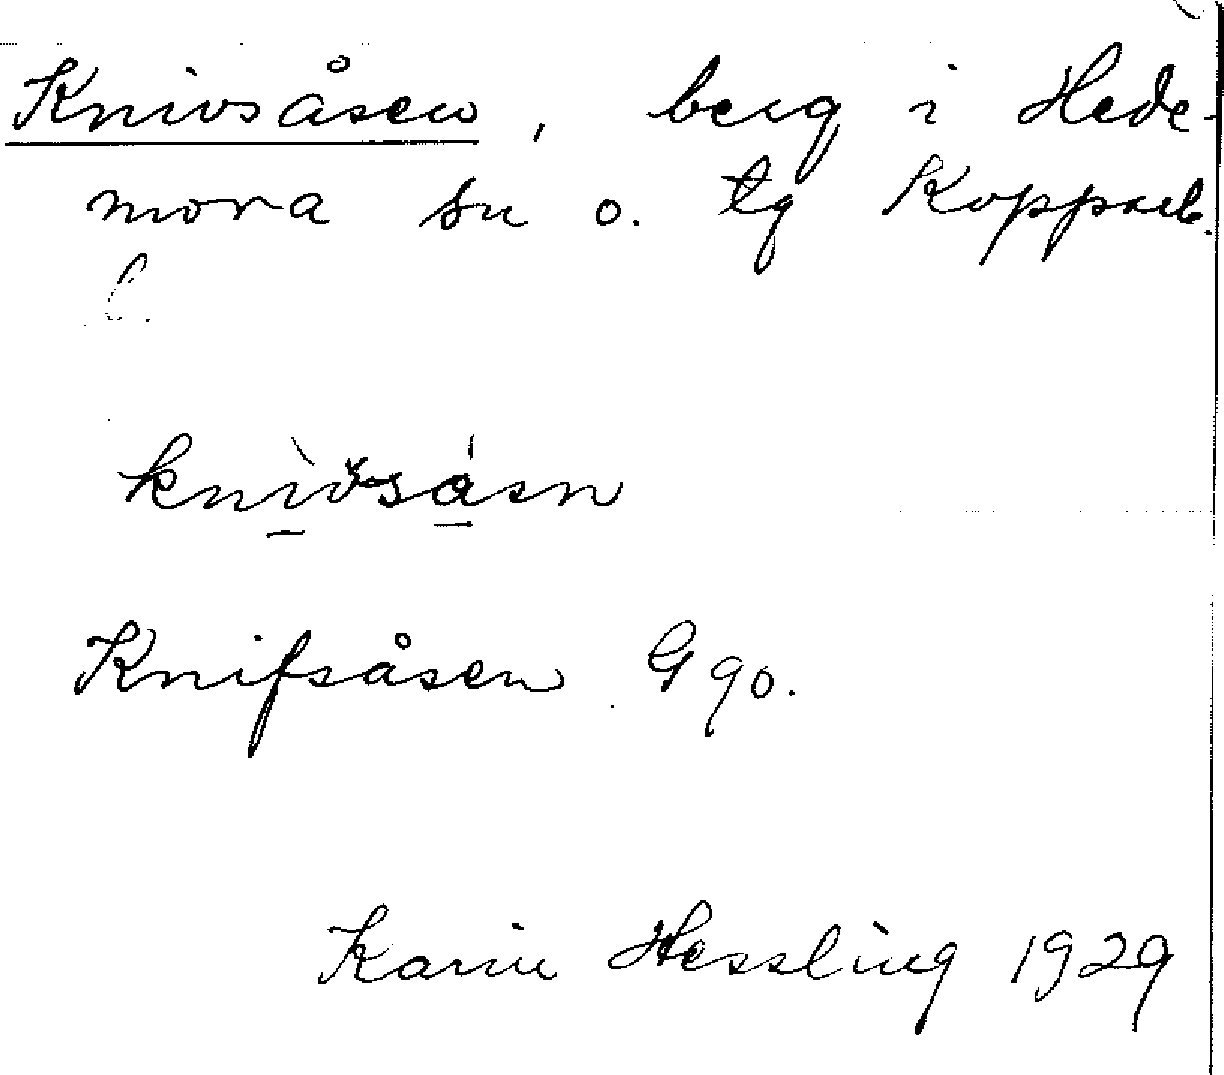 Knivsåsen, berg i Hede-
mora sn o. tg Kopparb.
l.
knìvsásn
Knifsåsen G 90.
Karin Hessling 1929